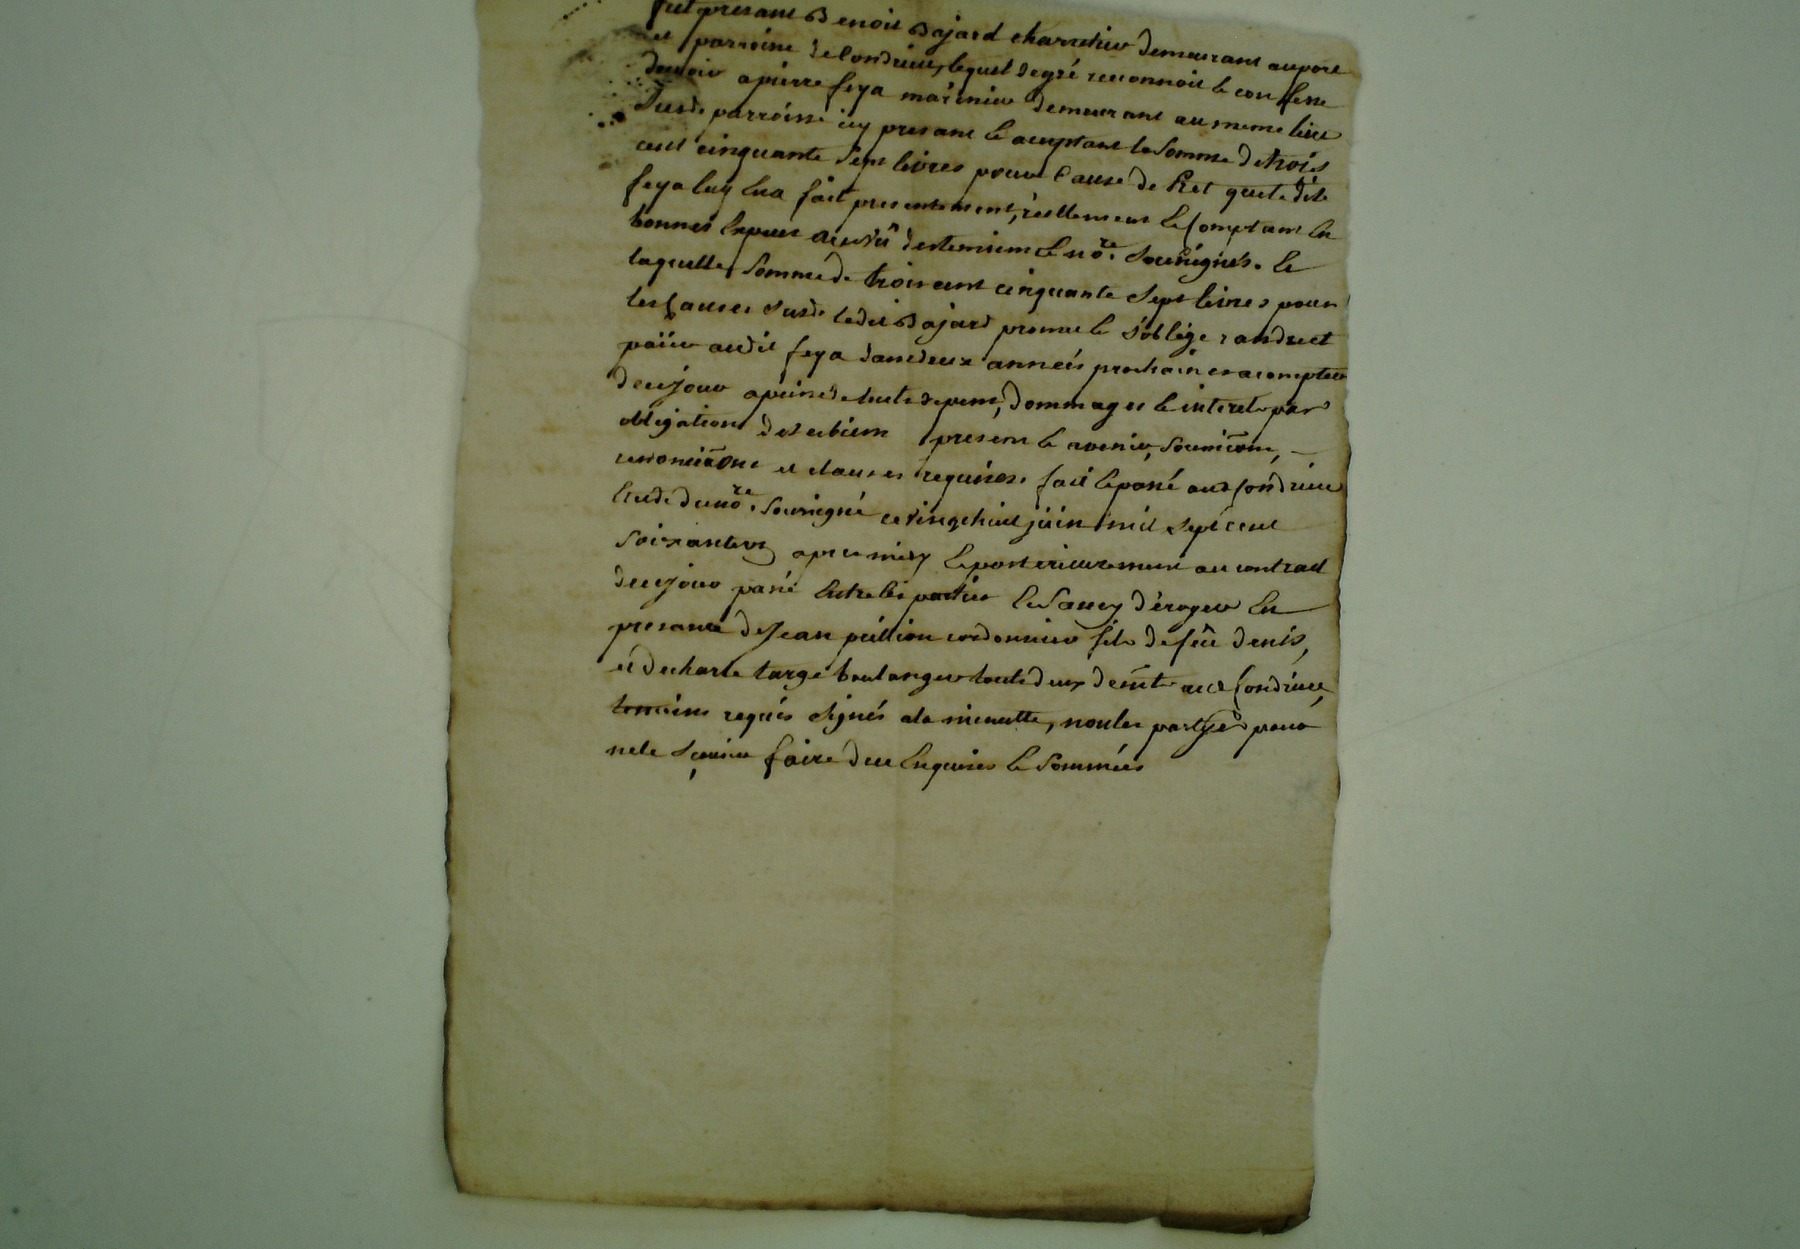 fut presant Benoit Bajard charretier demeurant au port
et parroisse de Condrieu, lequel de gré reconnoit & confesse
devoir a pierre feya marinier demeurant au meme lieu
susde parroisse icy presant & acceptant la somme de trois
cent cinquante sept livres pour Cause de Pret que ledit
feya luy En a fait presentement, réellement & Comptant En
bonnes Especes au vû des temoins & nore. soussignés. &
laquelle somme de trois cent cinquante sept livres pour
les Causes susds ledit Bajard promet & s'oblige randre et
païer audit feya dans deux années prochaines a compter
de ce jour a peine de touts depens, dommages & interets par
obligation de ses biens presens & avenir, soumiõns,
renonciãons et clauses requises. fait & passé aud Condrieu
Etude du nore. soussigné ce vingt huit juin mil sept cent
soixante apres midy & posterieurement au contract
de ce jour passé Entre les parties & sans y déroger En
presance de Jean pution cordonnier fils de feû denis,
et de charle targe boulanger touts deux demts aud Condrieu,
temoins requis signés a la minutte, non les partyes pour
ne le sçavoir faire de ce Enquises & sommées